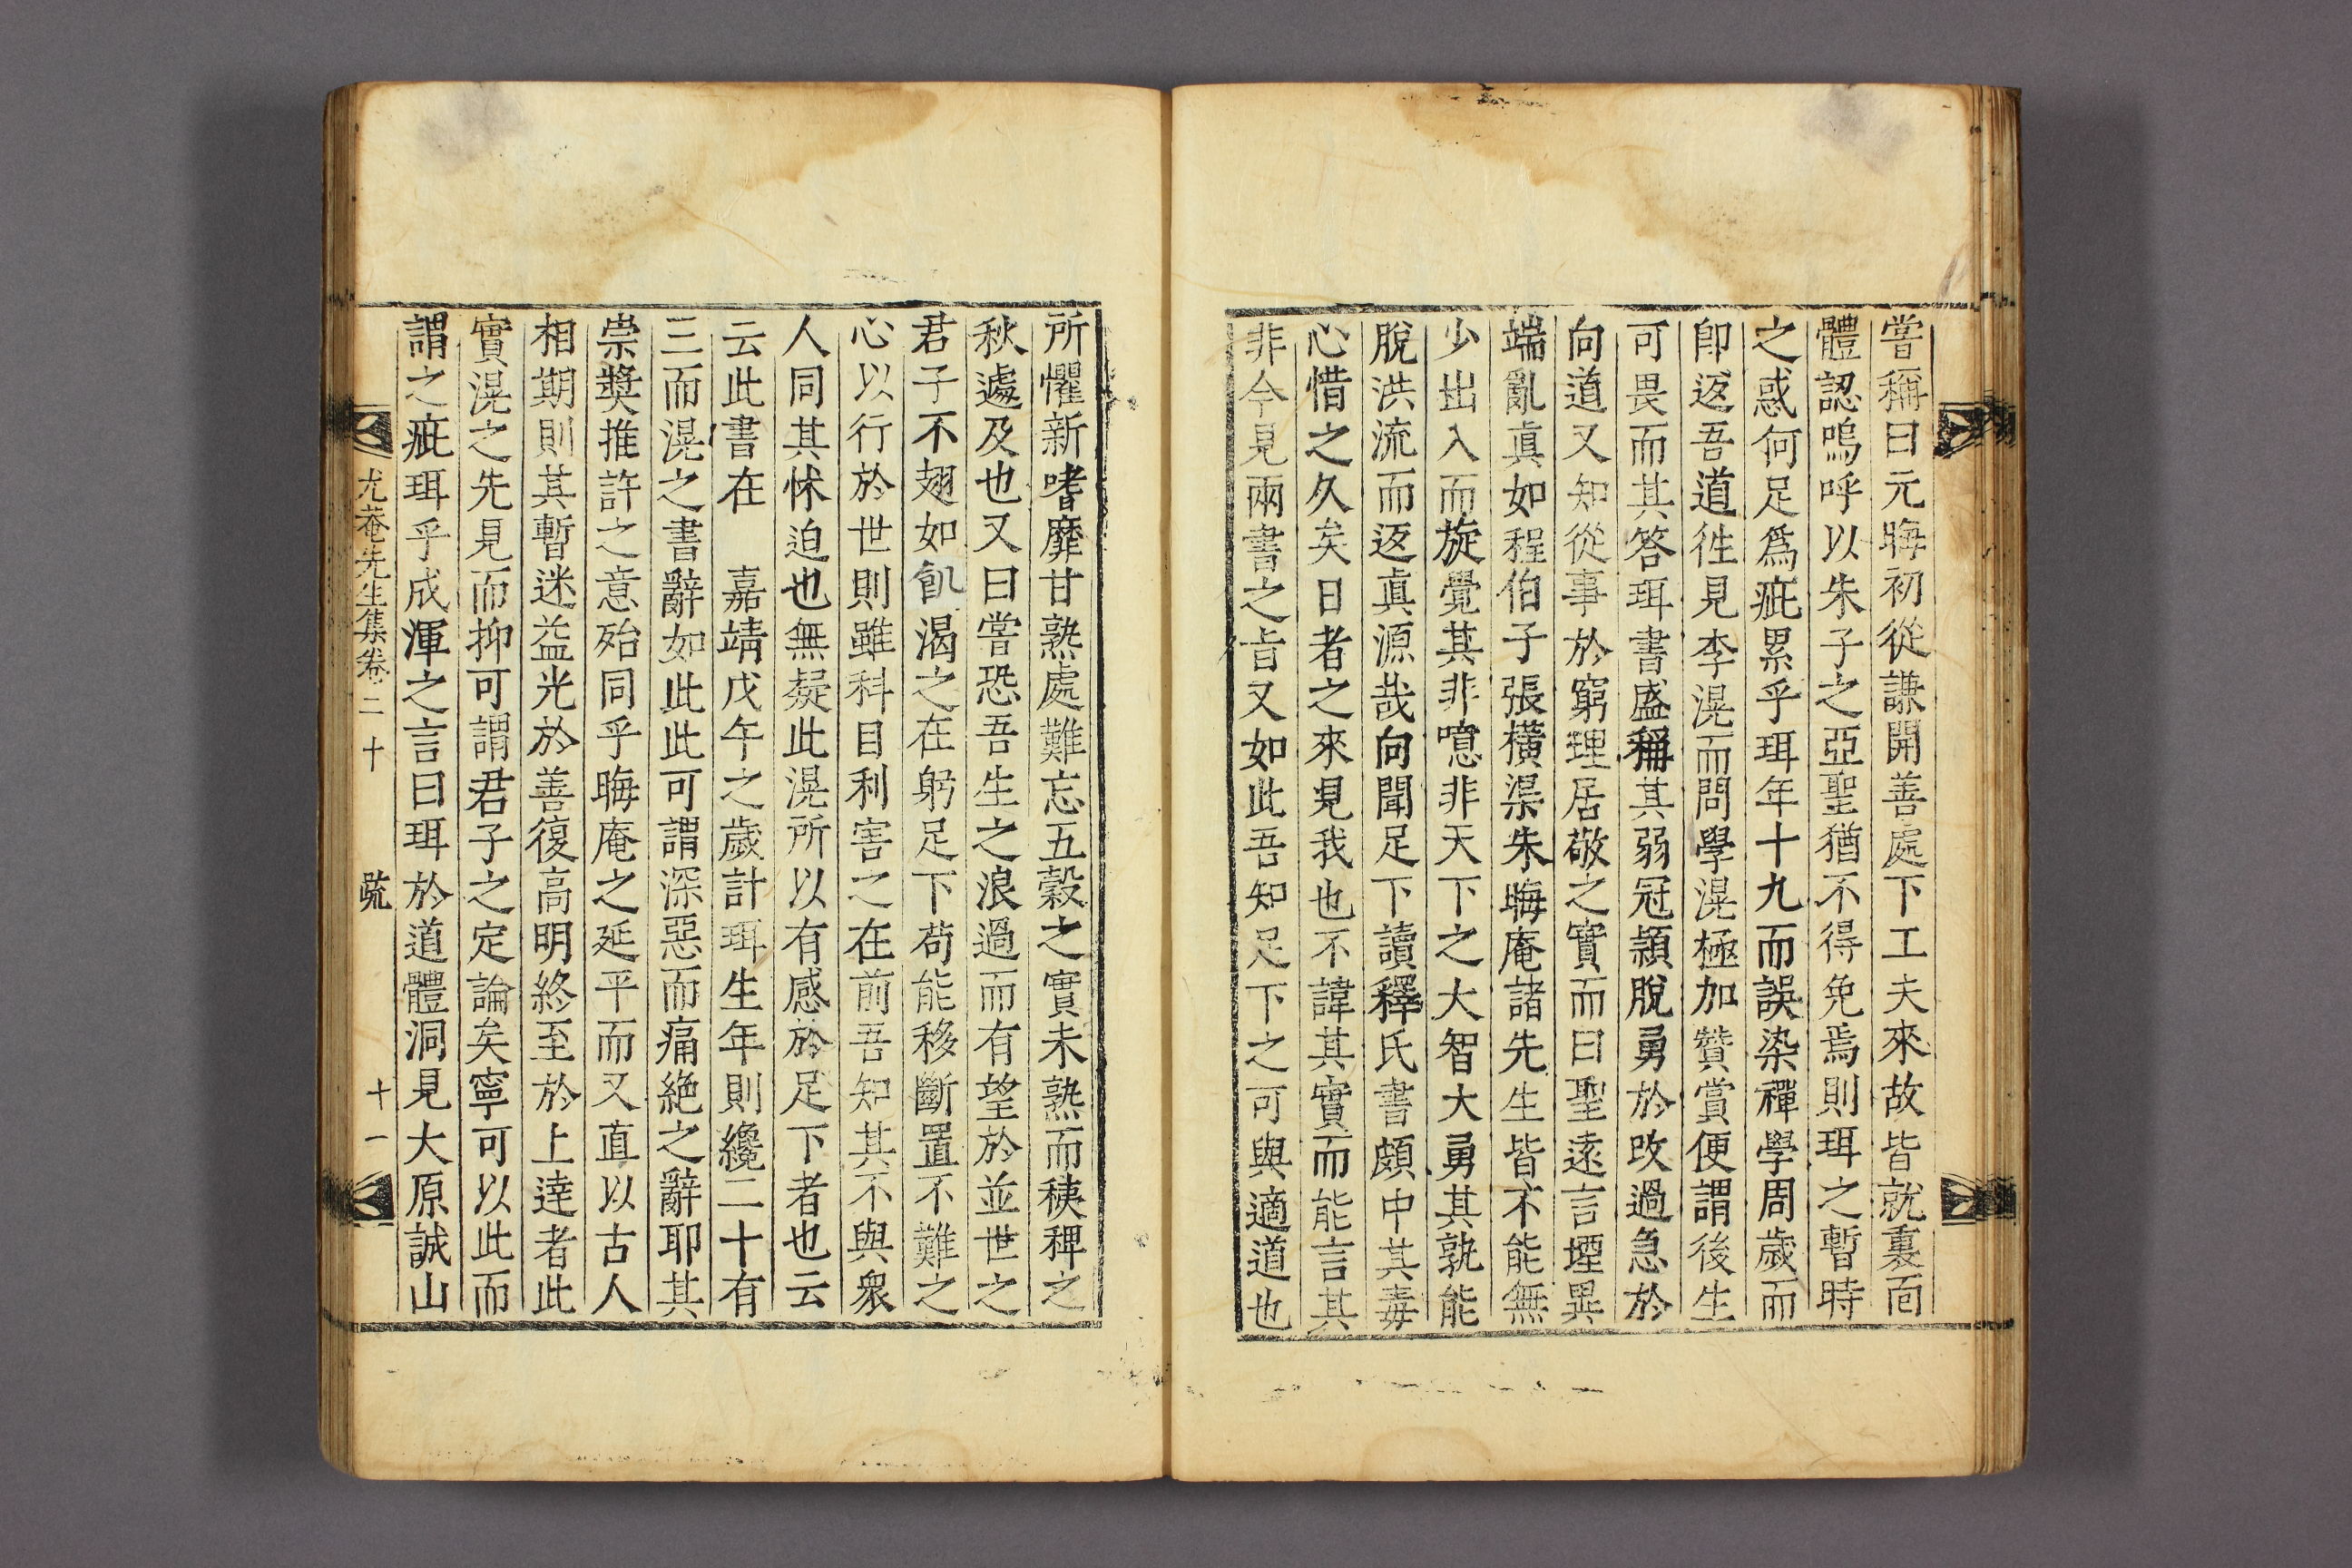 嘗稱曰元晦初從謙開善處下工夫來故皆就裏面
體認嗚呼以朱子之亞聖猶不得免焉則珥之暫時
之惑何足爲疵累乎珥年十九而誤染禪學周歲而
卽返吾道徃見李滉而問學滉極加贊賞便謂後生
可畏而其答珥書盛稱其弱冠穎脫勇於改過急於
向道又知從事於窮理居敬之實而曰聖遠言堙異
端亂眞如程伯子張橫渠朱晦庵諸先生皆不能無
少出入而旋覺其非噫非天下之大智大勇其孰能
脫洪流而返眞源哉向聞足下讀釋氏書頗中其毒
心惜之久矣日者之來見我也不諱其實而能言其
非今見兩書之旨又如此吾知足下之可與適道也
所懼新嗜靡甘熟處難忘五糓之實未熟而稊稗之
秋遽及也又曰嘗恐吾生之浪過而有望於並世之
君子不翅如飢渴之在躬足下苟能移斷置不難之
心以行於世則雖科目利害之在前吾知其不與衆
人同其怵迫也無疑此滉所以有感於足下者也云
云此書在　嘉靖戊午之歲計珥生年則纔二十有
三而滉之書辭如此此可謂深惡而痛絶之辭耶其
崇奬推許之意殆同乎晦庵之延平而又直以古人
相期則其暫迷益光於善復高明終至於上達者此
實滉之先見而抑可謂君子之定論矣寧可以此而
謂之疵珥乎成渾之言曰珥於道體洞見大原誠山
尤菴先生集卷二十　疏　十一